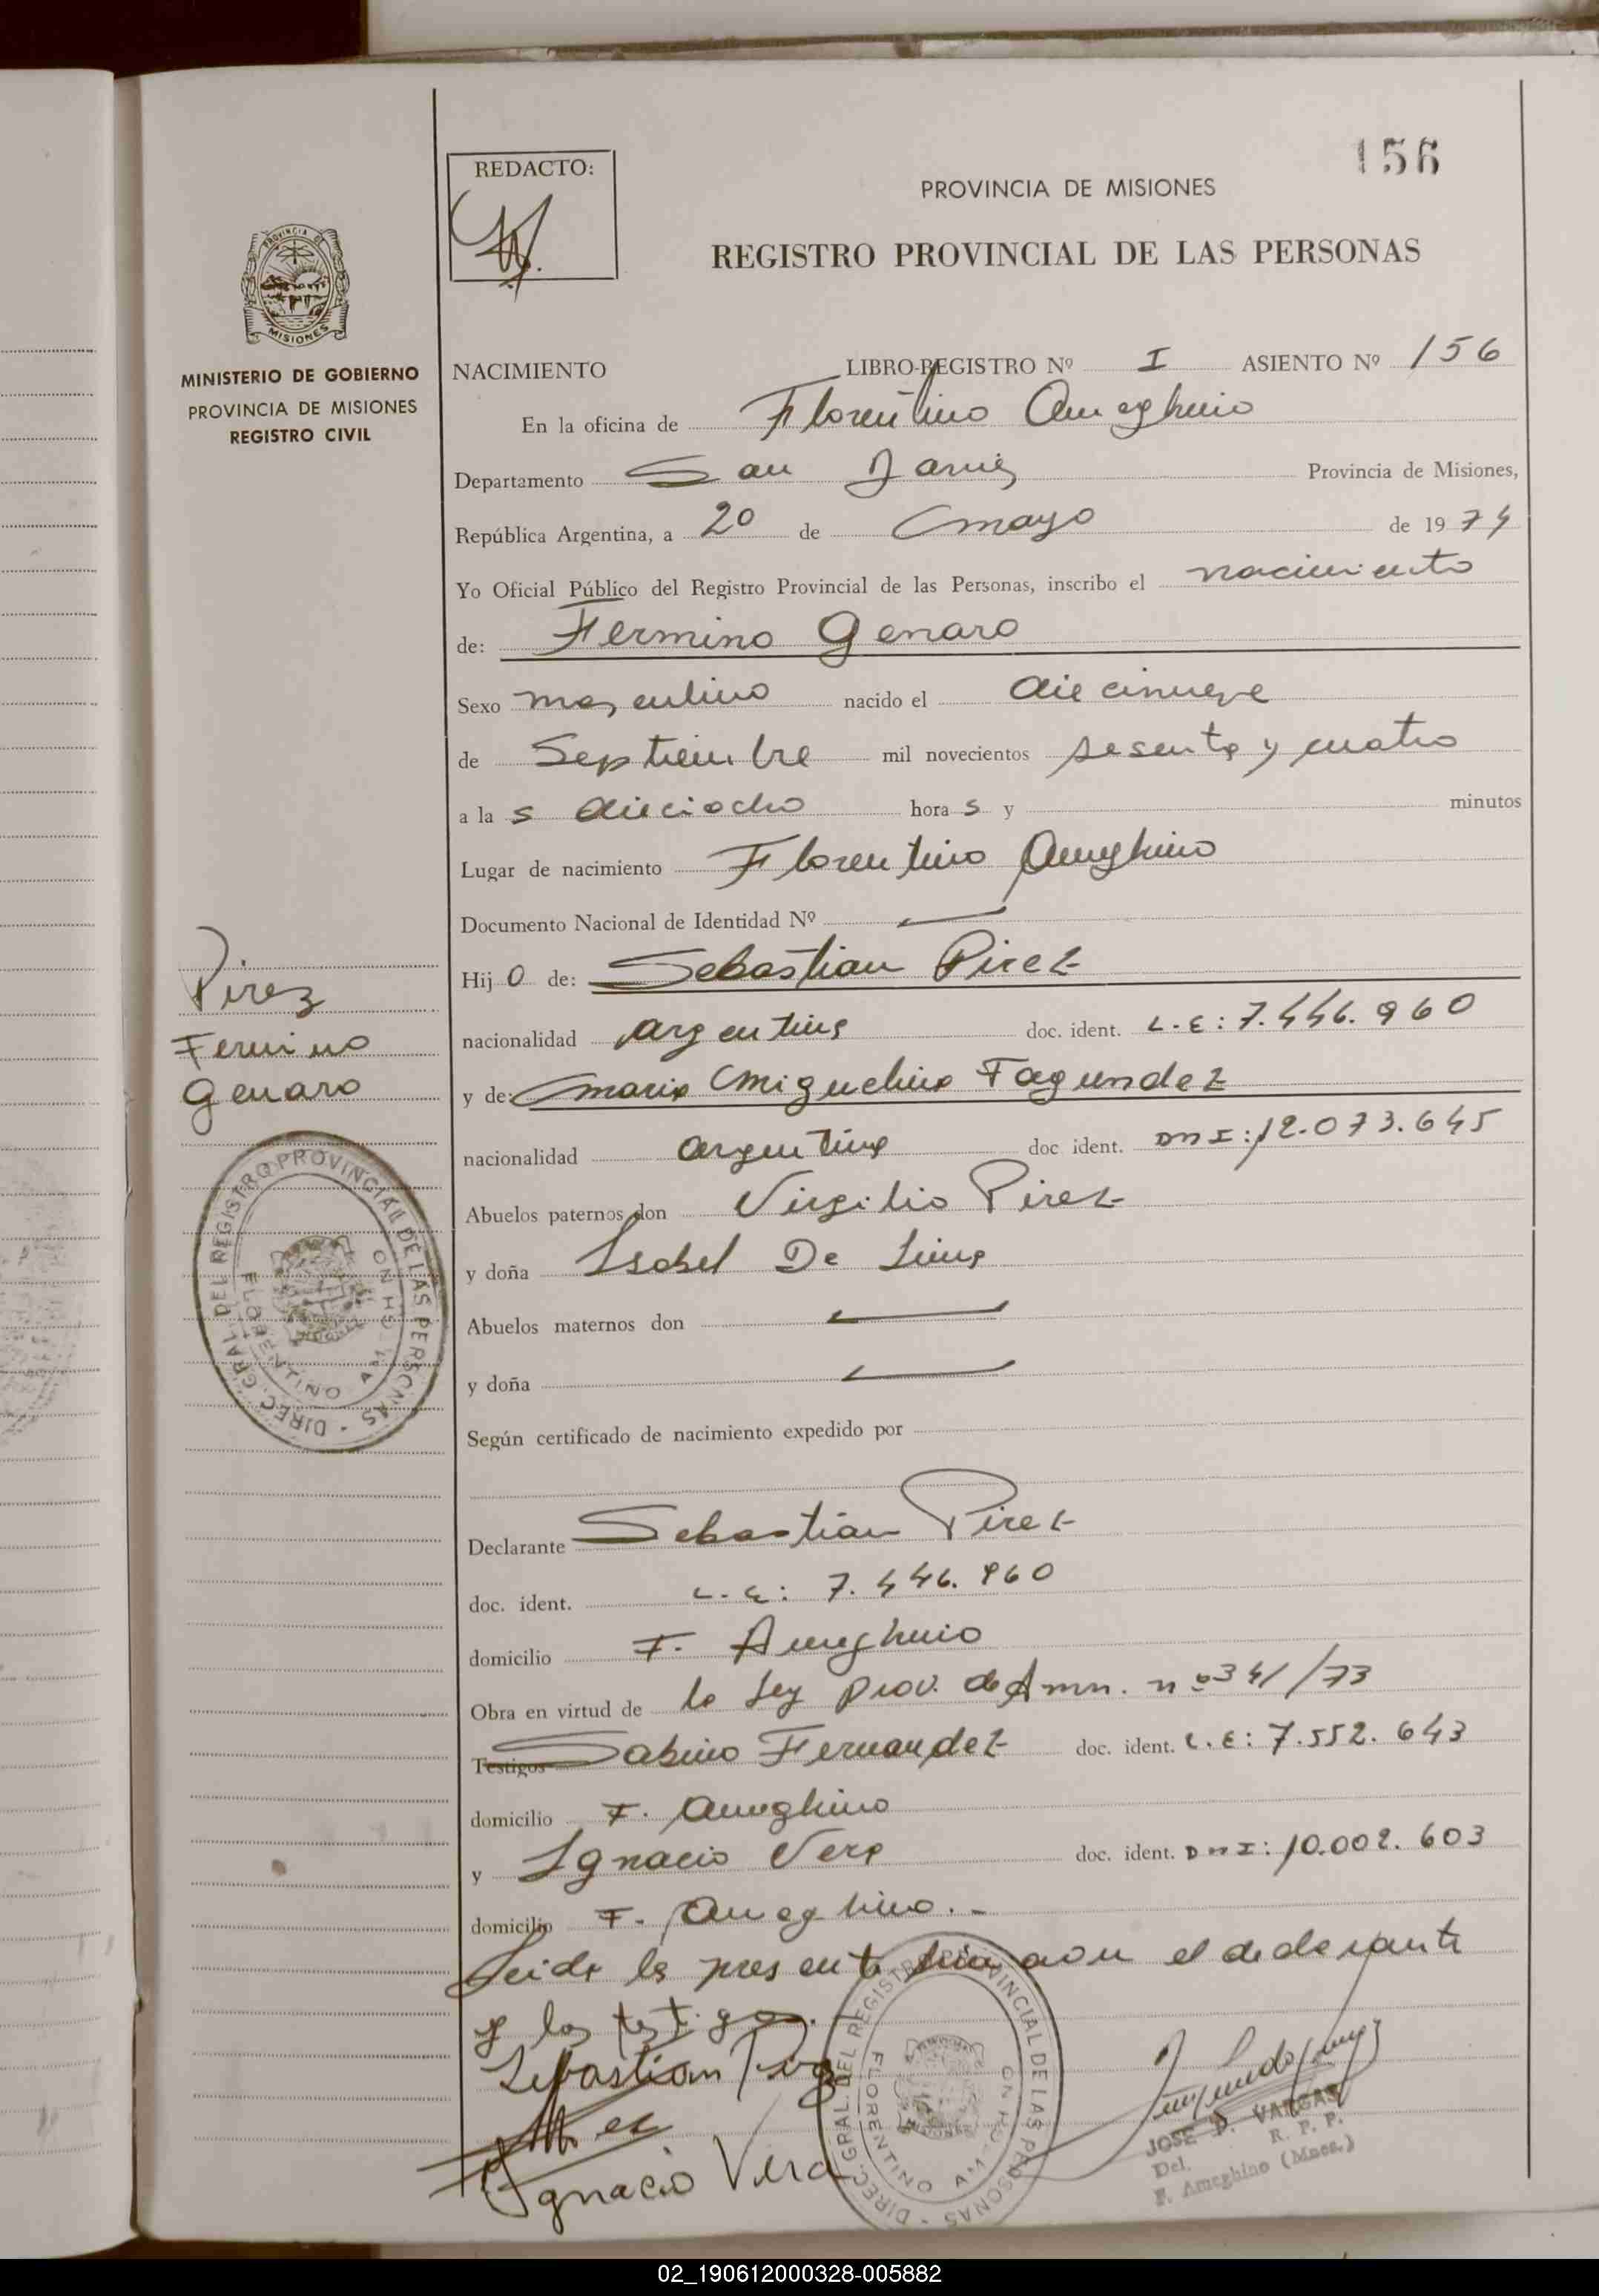 156
REDACTO:
PROVINCIA DE MISIONES
REGISTRO PROVINCIAL DE LAS PERSONAS
PROVINCIA DE
MISIONES
MINISTERIO DE GOBIERNO
PROVINCIA DE MISIONES
REGISTRO CIVIL
NACIMIENTO LIBRO-REGISTRO Nº I ASIENTO Nº 156
En la oficina de Florentino Ameghino
Departamento San Javier Provincia de Misiones,
República Argentina, a 20 de mayo de 1974
Yo Oficial Público del Registro Provincial de las Personas, inscribo el nacimiento
de: Fermino Genaro
Sexo masculino nacido el diecinueve
de Septiembre mil novecientos sesenta y cuatro
a las dieciocho horas y minutos
Lugar de nacimiento Florentino Ameghino
Documento Nacional de Identidad Nº —
Hijo de: Sebastian Pirez
nacionalidad argentina doc. ident. L.E: 7.446.960
y de: Maria Miguelina Fagundez
nacionalidad argentina doc ident. DNI: 12.073.645
Abuelos paternos don Virgilio Pirez
y doña Isabel De Lima
Abuelos maternos don —
y doña —
Según certificado de nacimiento expedido por
Declarante Sebastian Pirez
doc. ident. L.E: 7.446.960
domicilio F. Ameghino
Obra en virtud de la Ley Prov. de Amn. nº 341/73
Testigos Sabino Fernandez doc. ident. L.E: 7.552.643
domicilio F. Ameghino
y Ignacio Vera doc. ident. DNI: 10.002.603
domicilio F. Ameghino.-
Leida la presente firman el declarante
y los testigos.
Sebastian
Ignacio Vera
JOSE D. VARGAS
Del. R. P. P.
F. Ameghino (Mnes.)
Pirez
Fermino
Genaro
DIREC. GRAL. DEL REGISTRO PROVINCIAL DE LAS PERSONAS
FLORENTINO AMEGHINO
DIREC. GRAL. DEL REGISTRO PROVINCIAL DE LAS PERSONAS
FLORENTINO AMEGHINO
02_190612000328-005882